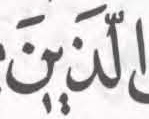 الَّذَيِنَ